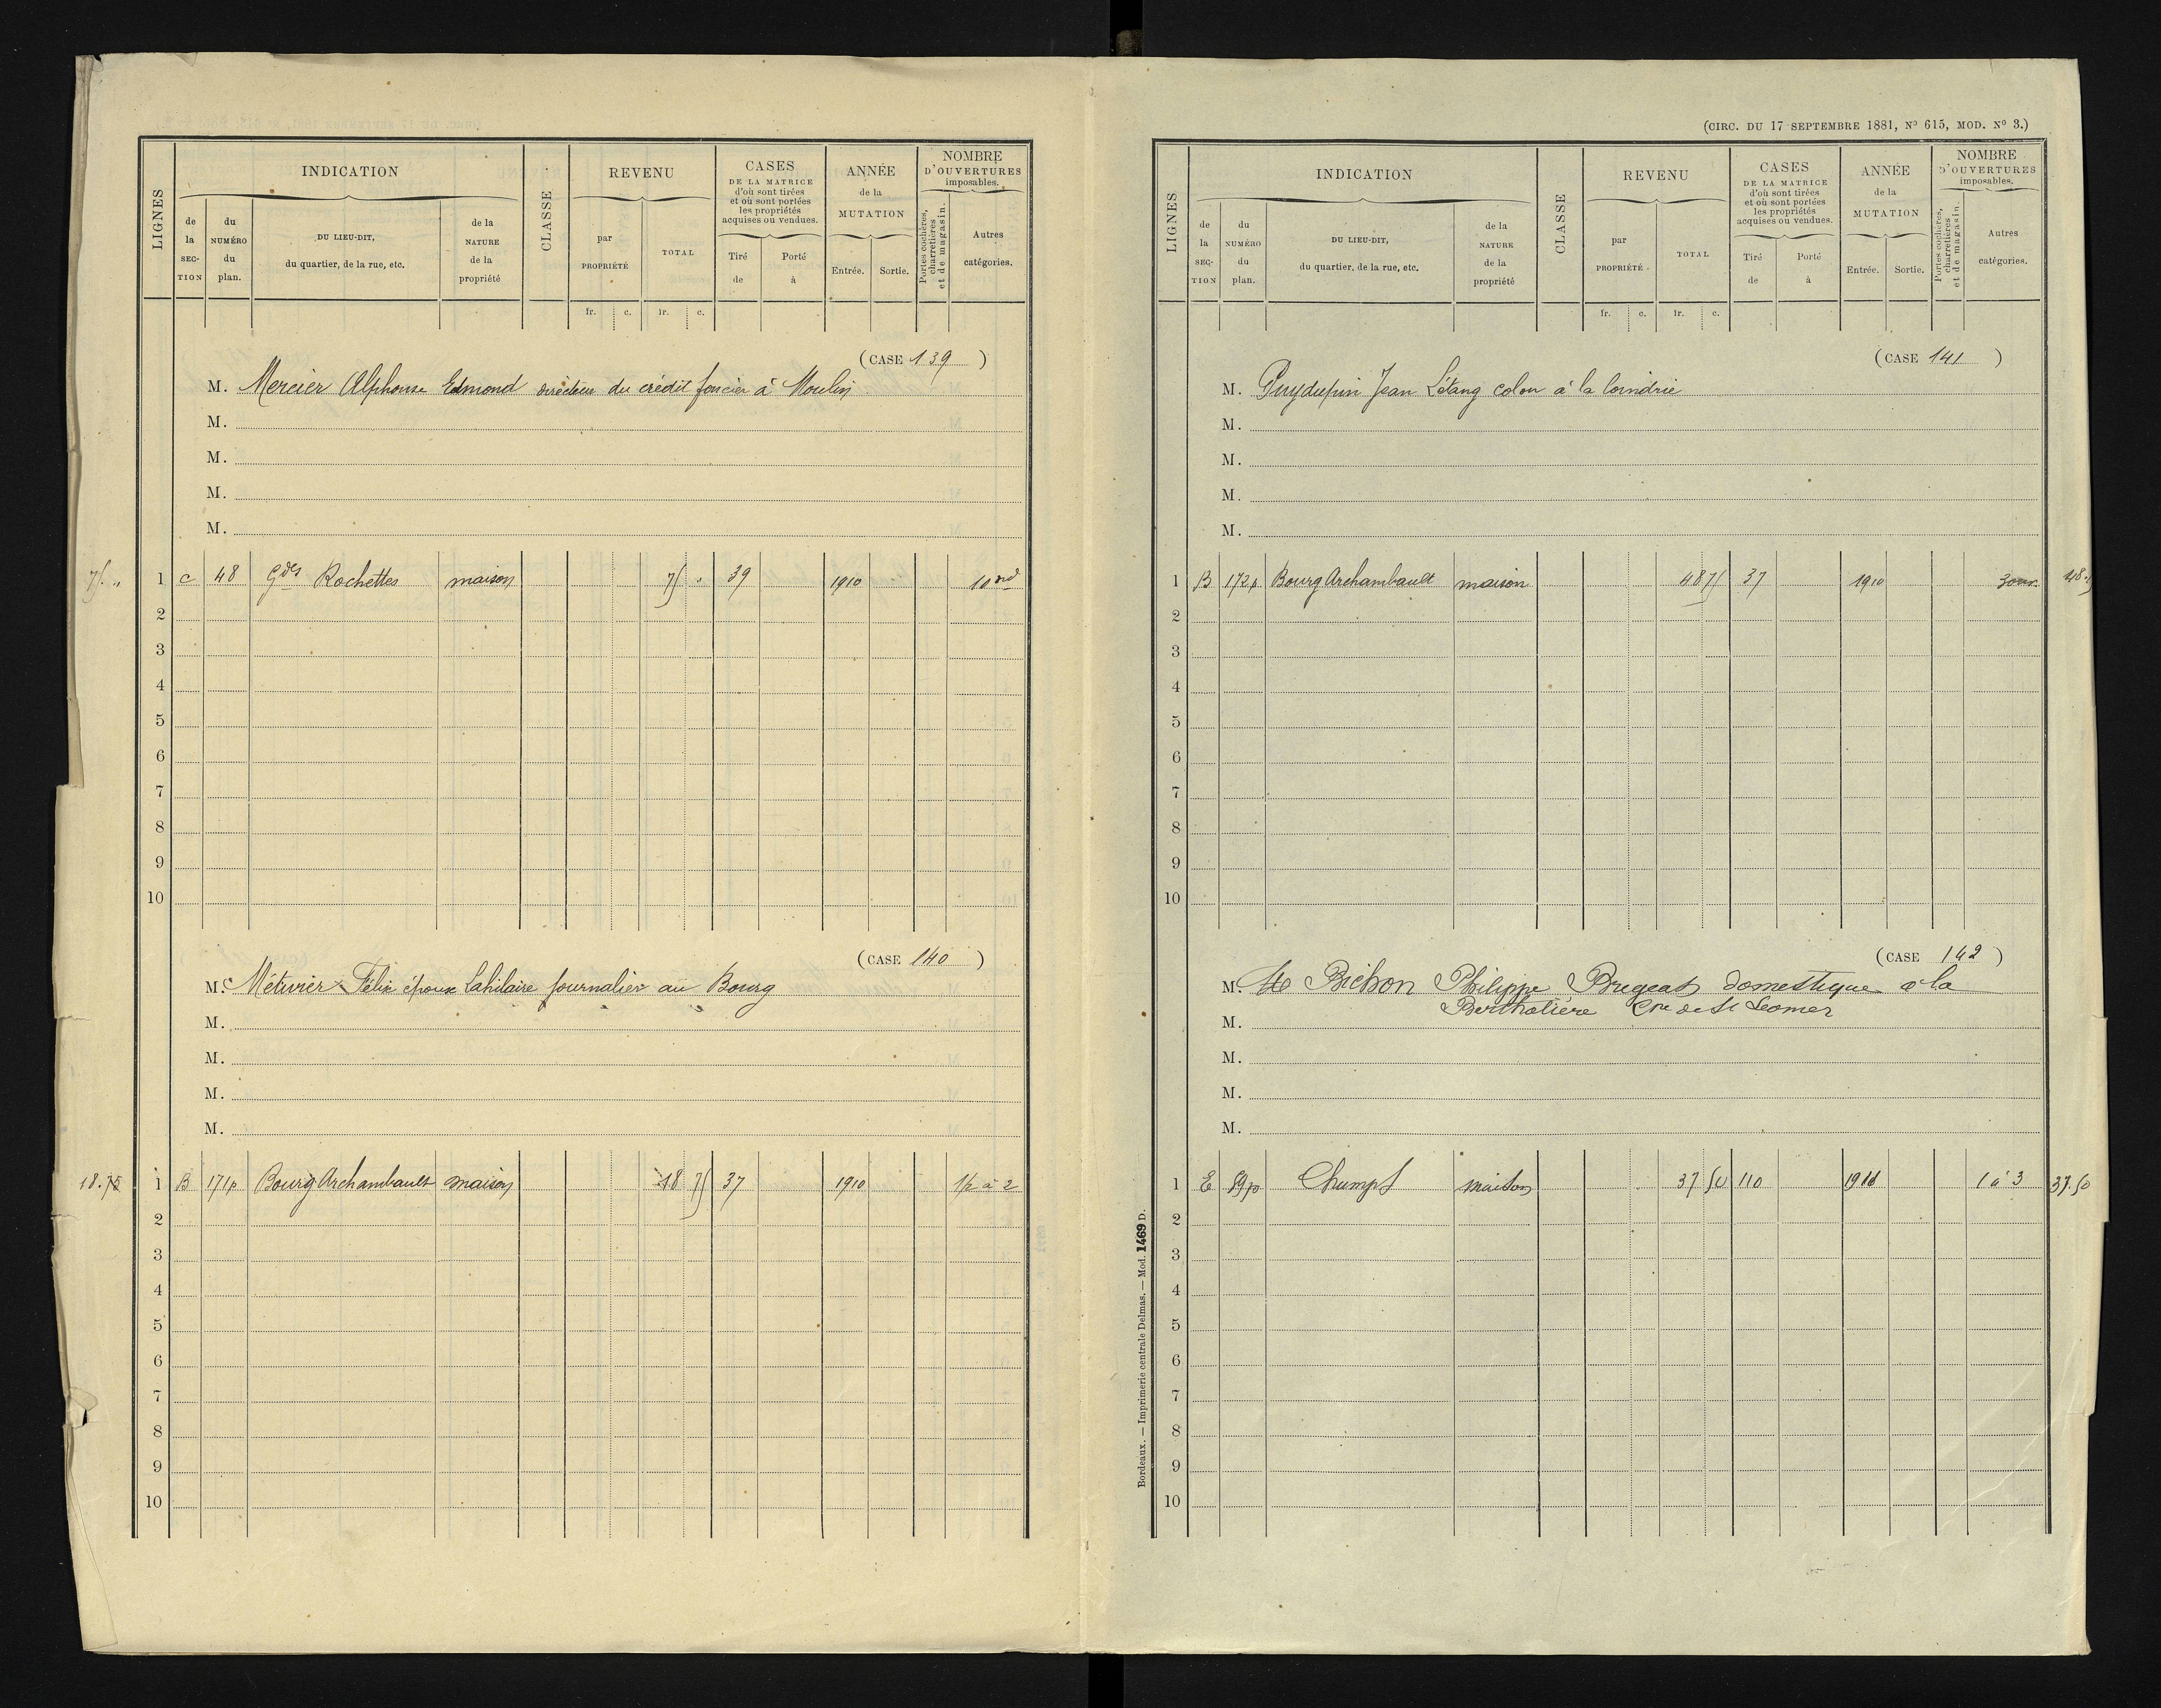 INDICATION
REVENU
CASES
DE LA MATRICE
d'où sont tirées
et où sont portées
les propriétés
acquises ou vendues.
ANNÉE
de la
MUTATION
NOMBRE
D'OUVERTURES
imposables.
LIGNES
de
la
SEC-
TION
du
NUMÉRO
du
plan.
DU LIEU-DIT,
du quartier, de la rue, etc.
de la
NATURE
de la
propriété
CLASSE
par
PROPRIÉTÉ
TOTAL
Tiré
de
Porté
à
Entrée.
Sortie.
Portes cochères,
charretières
et de magasin.
Autres
catégories.
fr. c. fr. c.
(CASE 139)
M. Mercier Alphonse Edmond directeur du crédit foncier à Moulin
M.
M.
M.
M.
75 " 1 C 48 Gdes Rochettes maison 75 " 39 1910
2
3
4
5
6
7
8
9
10
(CASE 140)
M. Métivier Félix époux Lahilaire journalier au Bourg
M.
M.
M.
M.
18.75 1 B 171p Bourg Archambault maison 18 75 37 1910 1p à 2
2
3
4
5
6
7
8
9
10
(CIRC. DU 17 SEPTEMBRE 1881, N° 615, MOD. N° 3.)
INDICATION
REVENU
CASES
DE LA MATRICE
d'où sont tirées
et où sont portées
les propriétés
acquises ou vendues.
ANNÉE
de la
MUTATION
NOMBRE
D'OUVERTURES
imposables.
LIGNES
de
la
SEC-
TION
du
NUMÉRO
du
plan.
DU LIEU-DIT,
du quartier, de la rue, etc.
de la
NATURE
de la
propriété
CLASSE
par
PROPRIÉTÉ
TOTAL
Tiré
de
Porté
à
Entrée.
Sortie.
Portes cochères,
charretières
et de magasin.
Autres
catégories.
fr. c. fr. c.
(CASE 141)
M. Puydupin Jean Létang colon à la loindrie
M.
M.
M.
M.
1 B 172p Bourg Archambault maison 48 75 37 1910 3 ouv.
2
3
4
5
6
7
8
9
10
(CASE 142)
M. Bichon Philippe Brugeas domestique à la
Bertholière Cne de St Leomer
M.
M.
M.
M.
1 E 59p Champs maison 37 50 110 1911 1 à 3 37.50
2
3
4
5
6
7
8
9
10
Bordeaux. — Imprimerie centrale Delmas. — Mod. 1469 D.